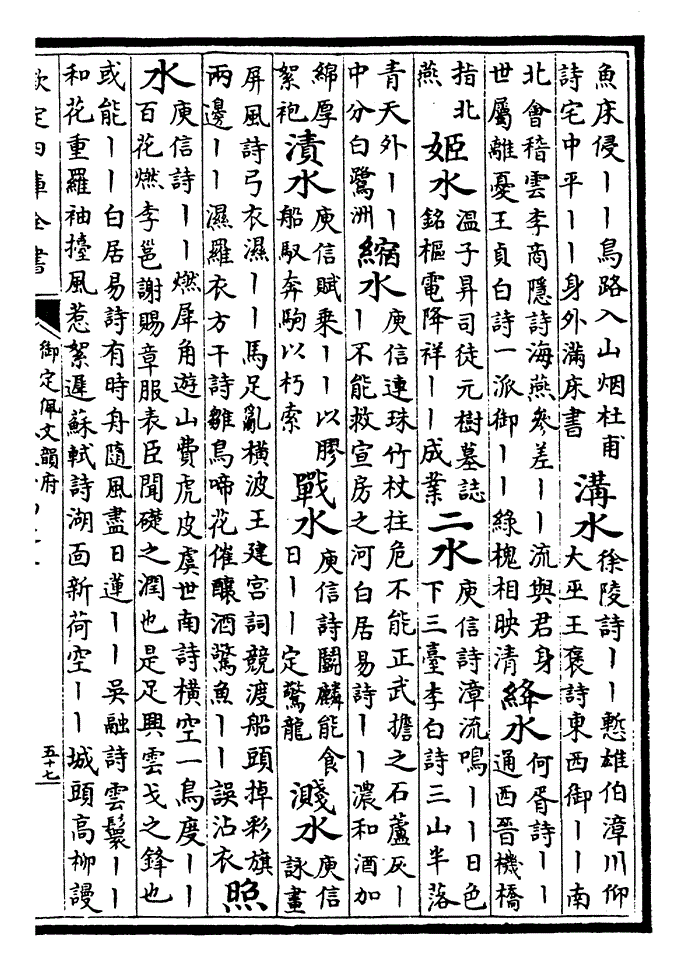 魚床侵丨丨鳥路入山烟杜甫
詩宅中平丨丨身外滿床書
溝水
徐陵詩丨丨慙雄伯漳川仰
大巫王褒詩東西御丨丨南
北會稽雲李商隱詩海燕參差丨丨流與君身
世屬離憂王貞白詩一派御丨丨綠槐相映清
絳水
何胥詩丨丨
通西晉機橋
指北
燕
姬水
溫子昇司徒元樹墓誌
銘樞電降祥丨丨成業
二水
庾信詩漳流鳴丨丨日色
下三臺李白詩三山半落
青天外丨丨
中分白鷺洲
縮水
庾信連珠竹杖拄危不能正武擔之石蘆灰丨
丨不能救宣房之河白居易詩丨丨濃和酒加
綿厚
絮袍
漬水
庾信賦乗丨丨以膠
船馭奔駒以朽索
戰水
庾信詩鬭麟能食
日丨丨定驚龍
濺水
庾信
詠畫
屏風詩弓衣濕丨丨馬足亂橫波王建宮詞競渡船頭掉彩旗
兩邊丨丨濕羅衣方干詩雛鳥啼花催釀酒驚魚丨丨誤沾衣
照
水
庾信詩丨丨燃犀角遊山費虎皮虞世南詩橫空一鳥度丨丨
百花燃李邕謝賜章服表臣聞礎之潤也是足興雲戈之鋒也
或能丨丨白居易詩有時舟隨風盡日蓮丨丨吳融詩雲鬟丨丨
和花重羅袖擡風惹絮遲蘇軾詩湖面新荷空丨丨城頭高柳謾
欽定四庫全書
御定佩文韻府
五十七